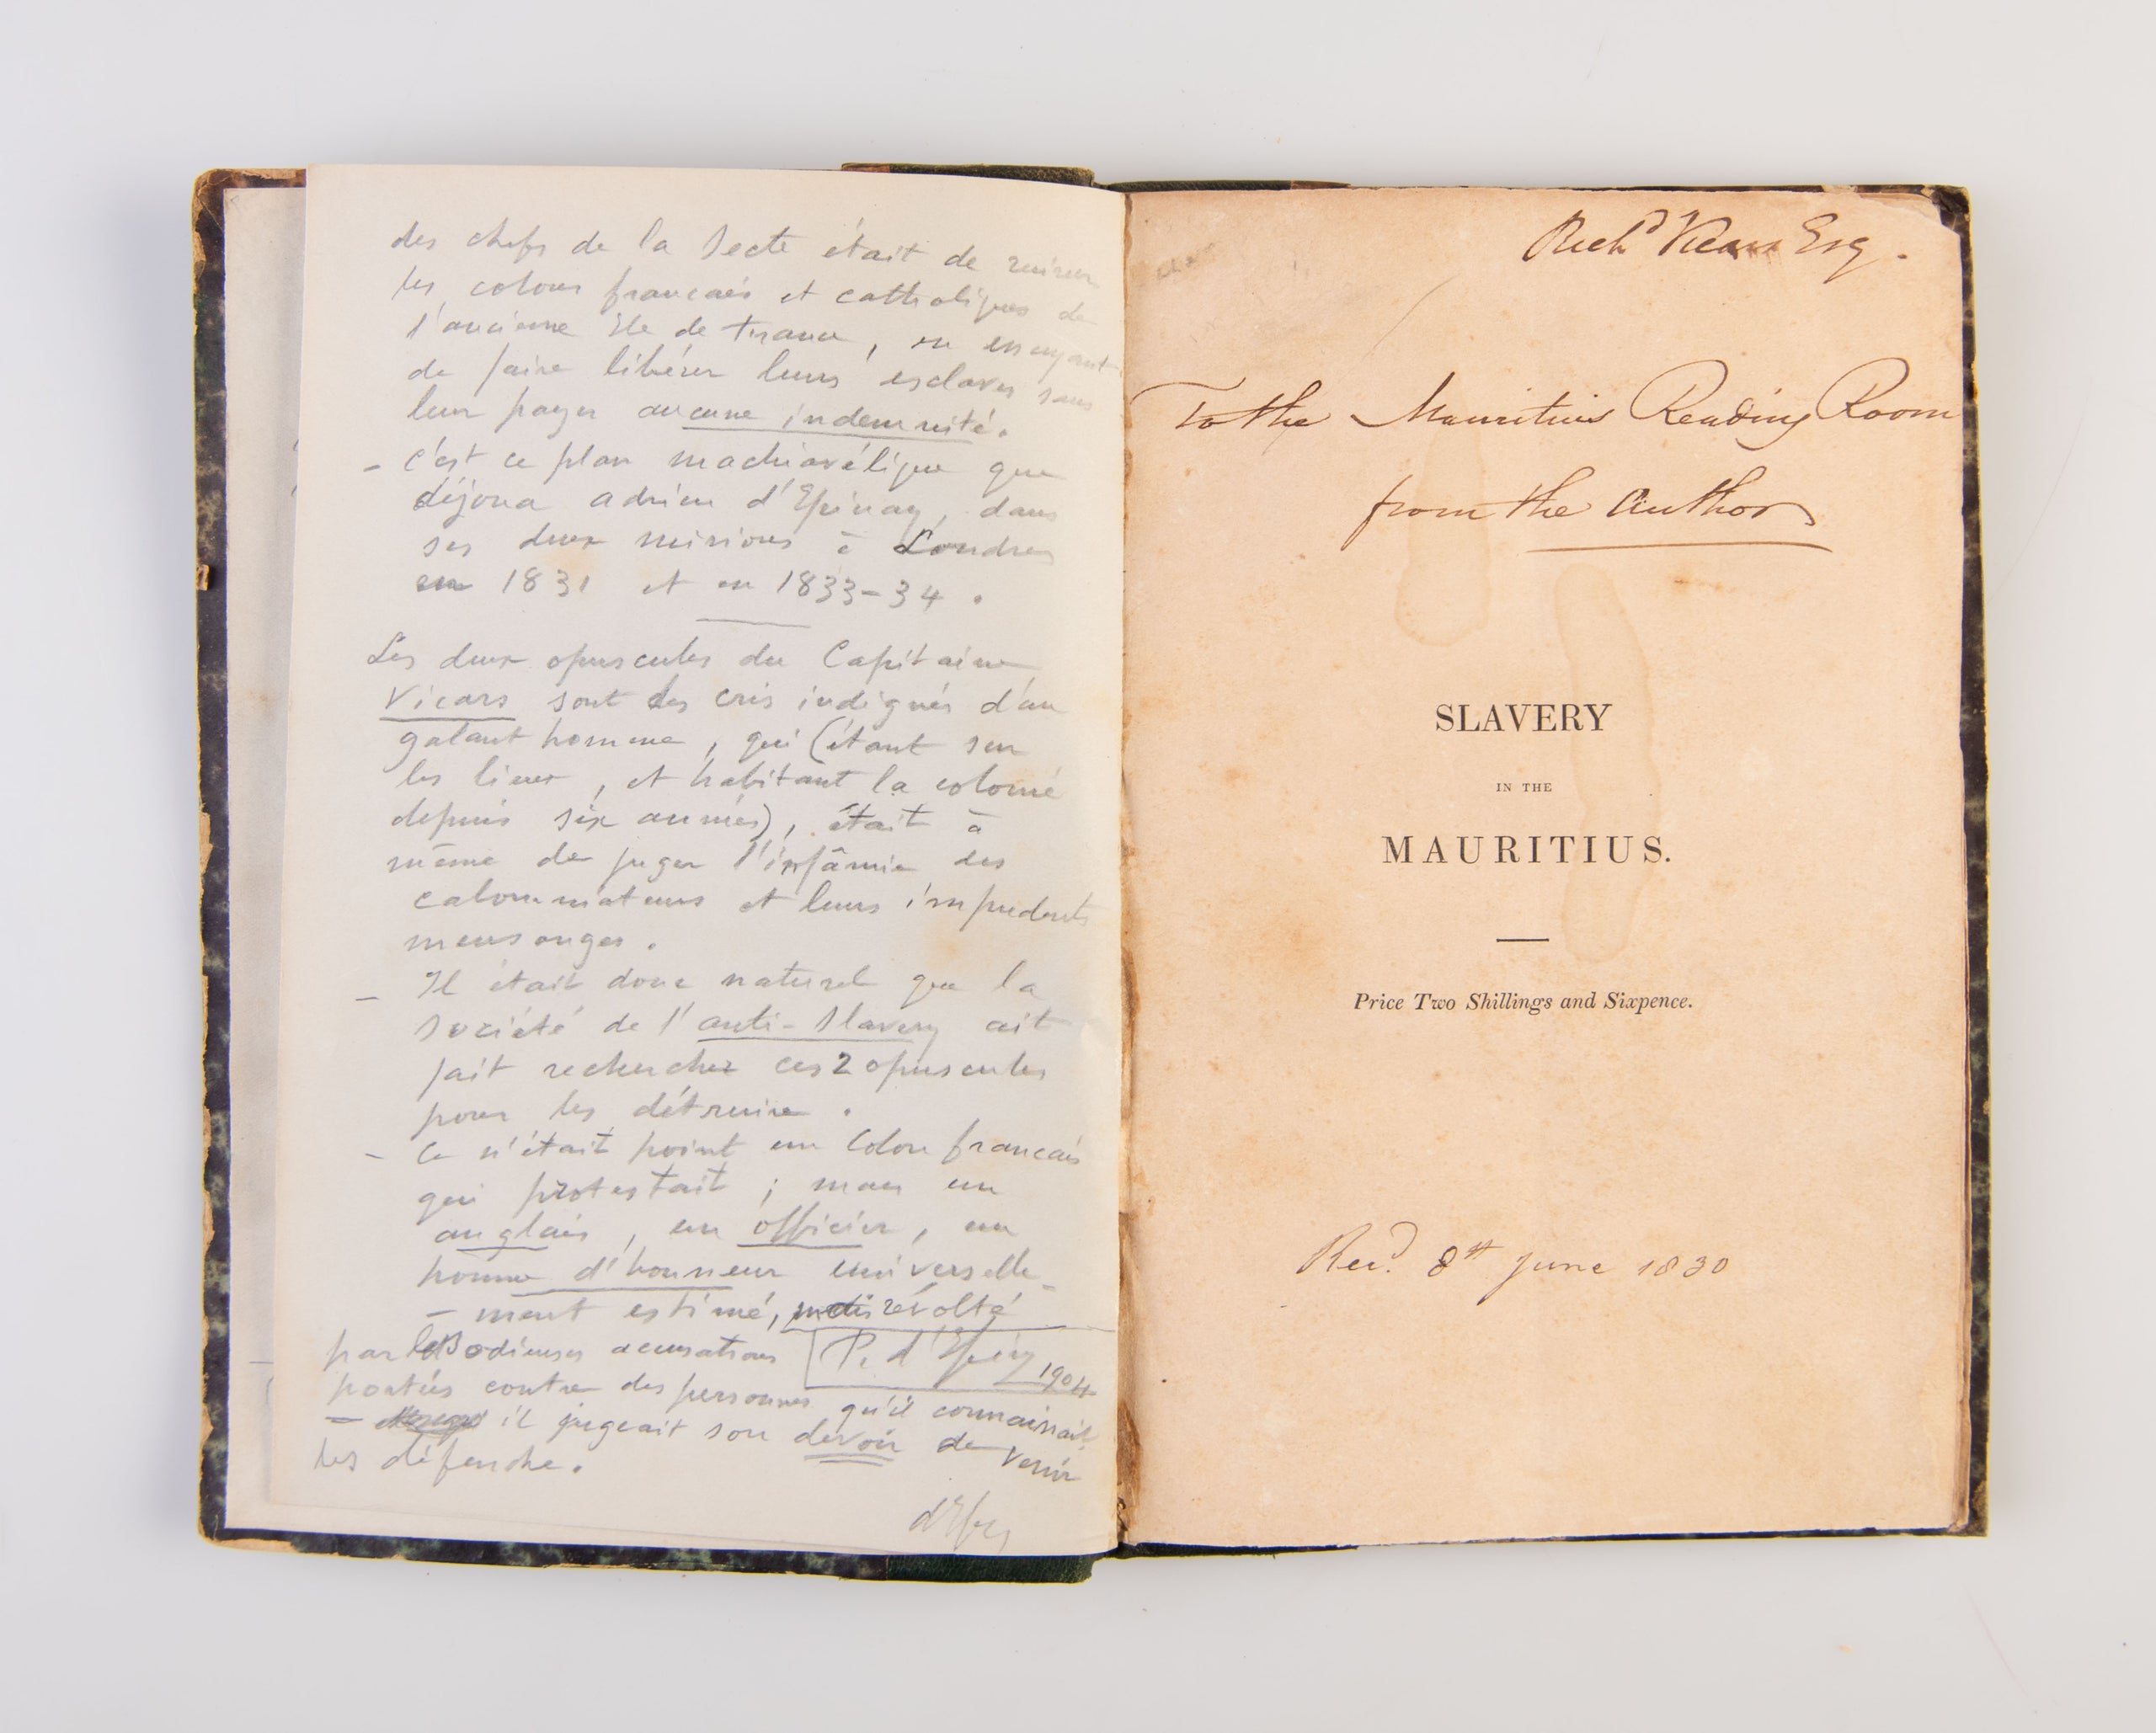 des chefs de la Secte était de ruiner
les colons francais et catholiques de
l'ancienne Ile de France, en essayant
de faire libérer leurs esclaves sans
leur payer aucune indemnité.
- C'est ce plan machiavélique que
déjoua Adrien d'Epinay, dans
ses deux missions à Londres
en 1831 et en 1833-34.
Les deux opuscules du Capitaine
Vicars sont des cris indignés d'un
galant homme, qui (étant sur
les lieux, et habitant la colonie
depuis six années), était à
même de juger l'infâmie des
calomniateurs et leurs impudents
mensonges.
- Il était donc naturel que la
Société de l'anti-Slavery ait
fait rechercher ces 2 opuscules
pour les détruire.
- Ce n'était point un Colon francais
qui protestait; mais un
anglais, un officier, un
homme d'honneur universelle-
- ment estimé, révolté
par les odieuses accusations
P. d'Epinay 1904
portées contre des personnes qu'il connaissait
- il jugeait son devoir de venir
les défendre.
d'Epy
Rich^d Esq.
To the Mauritius Reading Room
from the Author
SLAVERY
IN THE
MAURITIUS.
Price Two Shillings and Sixpence.
Rec^d. 8^th June 1830